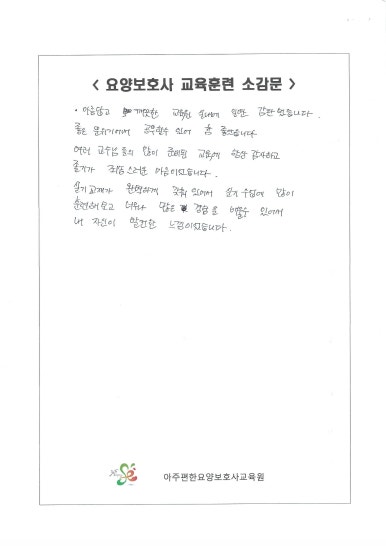 < 요양보호사 교육훈련 소감문 >
· 아름답고 깨끗한 교육원 실내에 일단 감탄 했습니다.
좋은 분위기에서 공부할수 있어 참 좋았습니다
여러 교수님 들의 많이 준비된 교육에 항상 감사하고
즐기가 죄송스러운 마음이었습니다.
실기교재가 완벽하게 갖춰 있어서 실기 수업에 많이
훈련해 보고 너무나 많은 경험을 배울수 있어서
내 자신이 발전한 느낌이었습니다.
아주편한요양보호사교육원